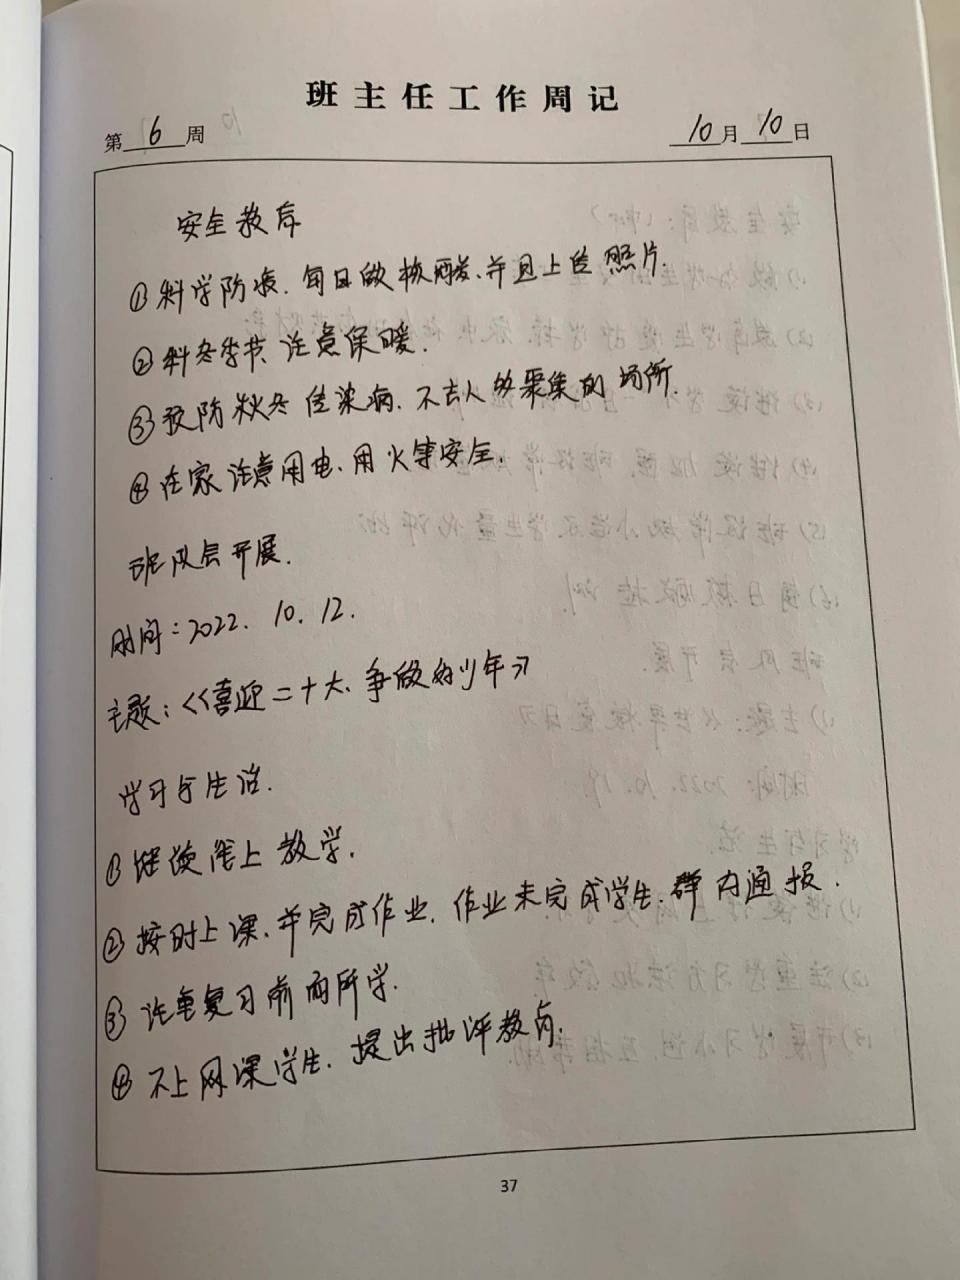 班主任工作周记
第 6 周 10月10日
安全教育
①科学防疫、每日做核酸、并且上传照片.
②秋冬季节、注意保暖.
③预防秋冬传染病、不去人多聚集的场所.
④在家注意用电、用火等安全.
班队会开展.
时间:2022. 10. 12.
主题:《喜迎二十大、争做好少年》
学习与生活.
①继续线上教学.
②按时上课、并完成作业、作业未完成学生、群内通报.
③注重复习前面所学.
④不上网课学生、提出批评教育.
37